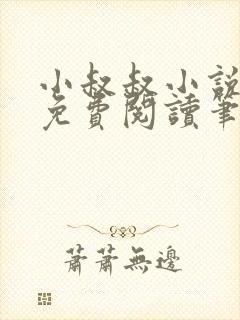 小叔叔小說
免費閱讀筆
蕭蕭無邊